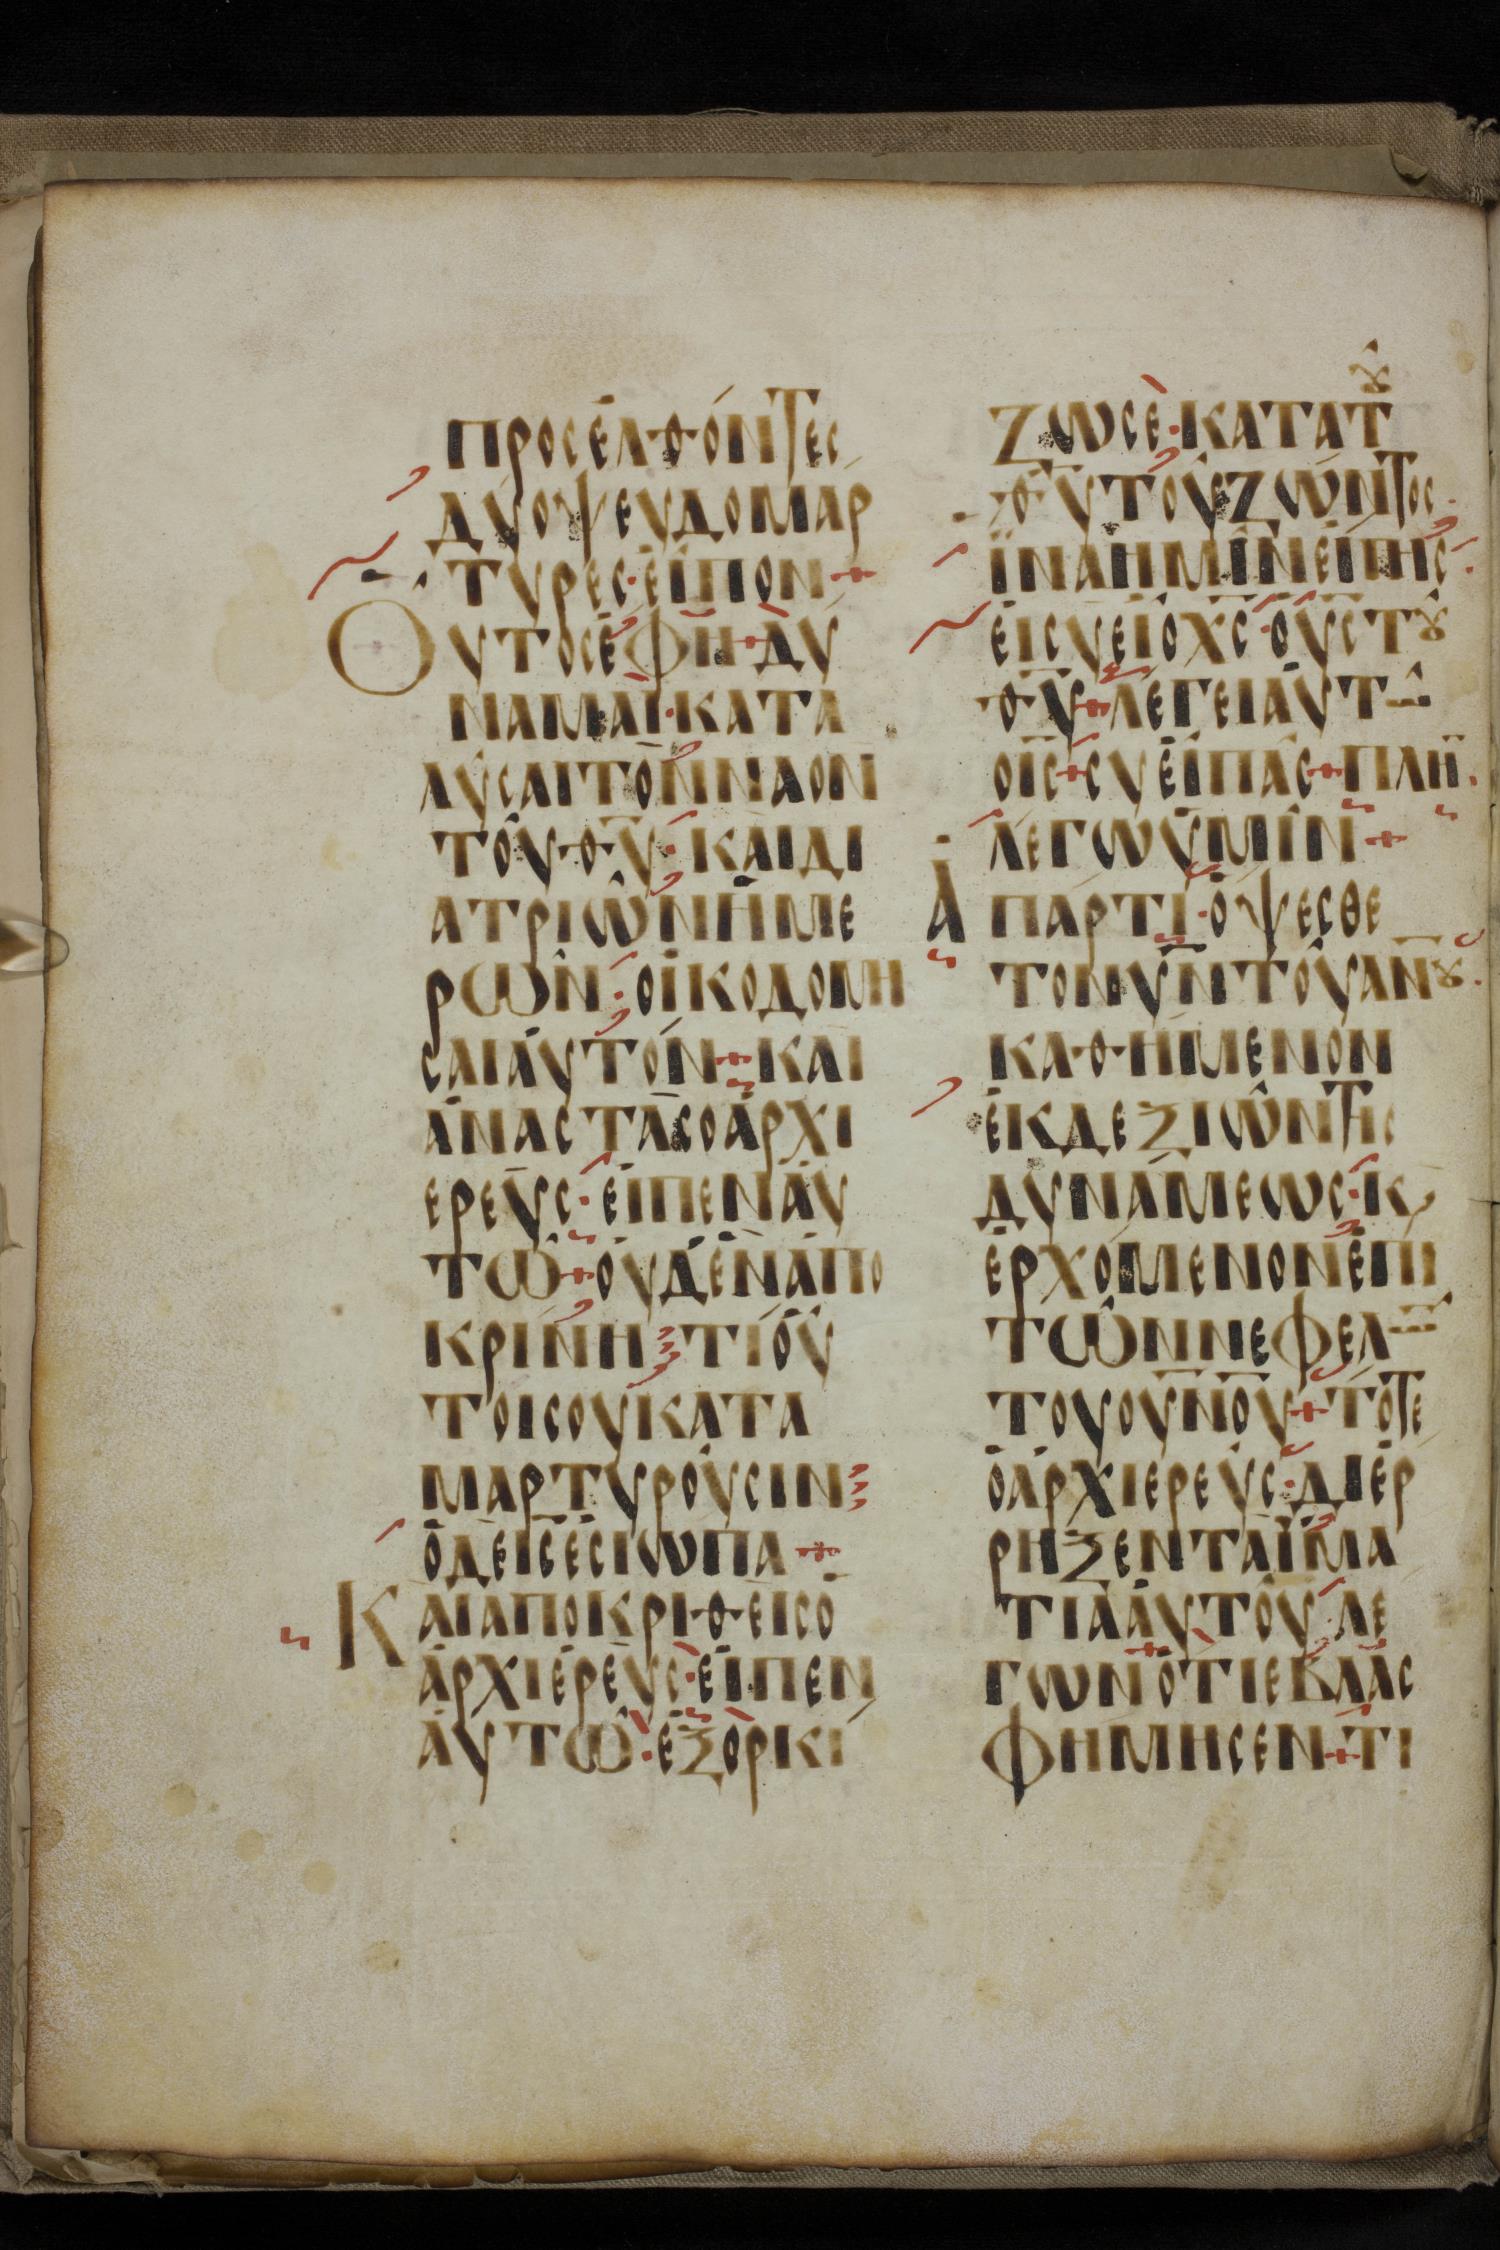 προσέλθόντες
δύοψευδομάρ
τυρες·εἶπον+
Ουτοσἔφη+δύ
ναμαι·κατα
λύσαιτὸνναον
τοῦθ̅υ̅·καὶδι
ατριῶνἡμε
ρῶν·οἰκοδομη
σαιἀυτόν+και
ἀναστὰσοἀρχι
ερεὺς·εἶπενἀυ
τῶ+οὐδὲνἀπο
κρίνη τίοὗ
τοισουκατα
μαρτυροῦσιν
ὁδεῖσἐσιωπα+
Καιαποκριθεὶσὁ
ἀρχιἐρεὺς·εἶπεν
ἀυτῶ·ἐξὁρκί
ζωσὲ·κατατȣ̂
θ̅υ̅τοῦζῶντος
ἵναἡμῖνεἴπης·
ἐισυεἶὁχ̅ς̅·ὁυ̅ς̅τȣ̂
θ̅υ̅+λεγειἀυτω
οι̅ς̅+συεἶπας+πλὴ
λεγωὑμῖν+
Ἀπάρτι·ὀψεσθε
τονυ̅ν̅τοῦαν̅ȣ̅
καθήμενον
ἐκδεξιῶντης
δυνάμεως·κ
ἐρχόμενονἐπι
τῶννεφελω
τουου̅ν̅ο̅υ̅+τότε
ὁἀρχιερεὺς·διέρ
ρηξενταϊμα
τιαἀυτοῦ·λε
γωνὅτιεβλας
φήμησεν+τι